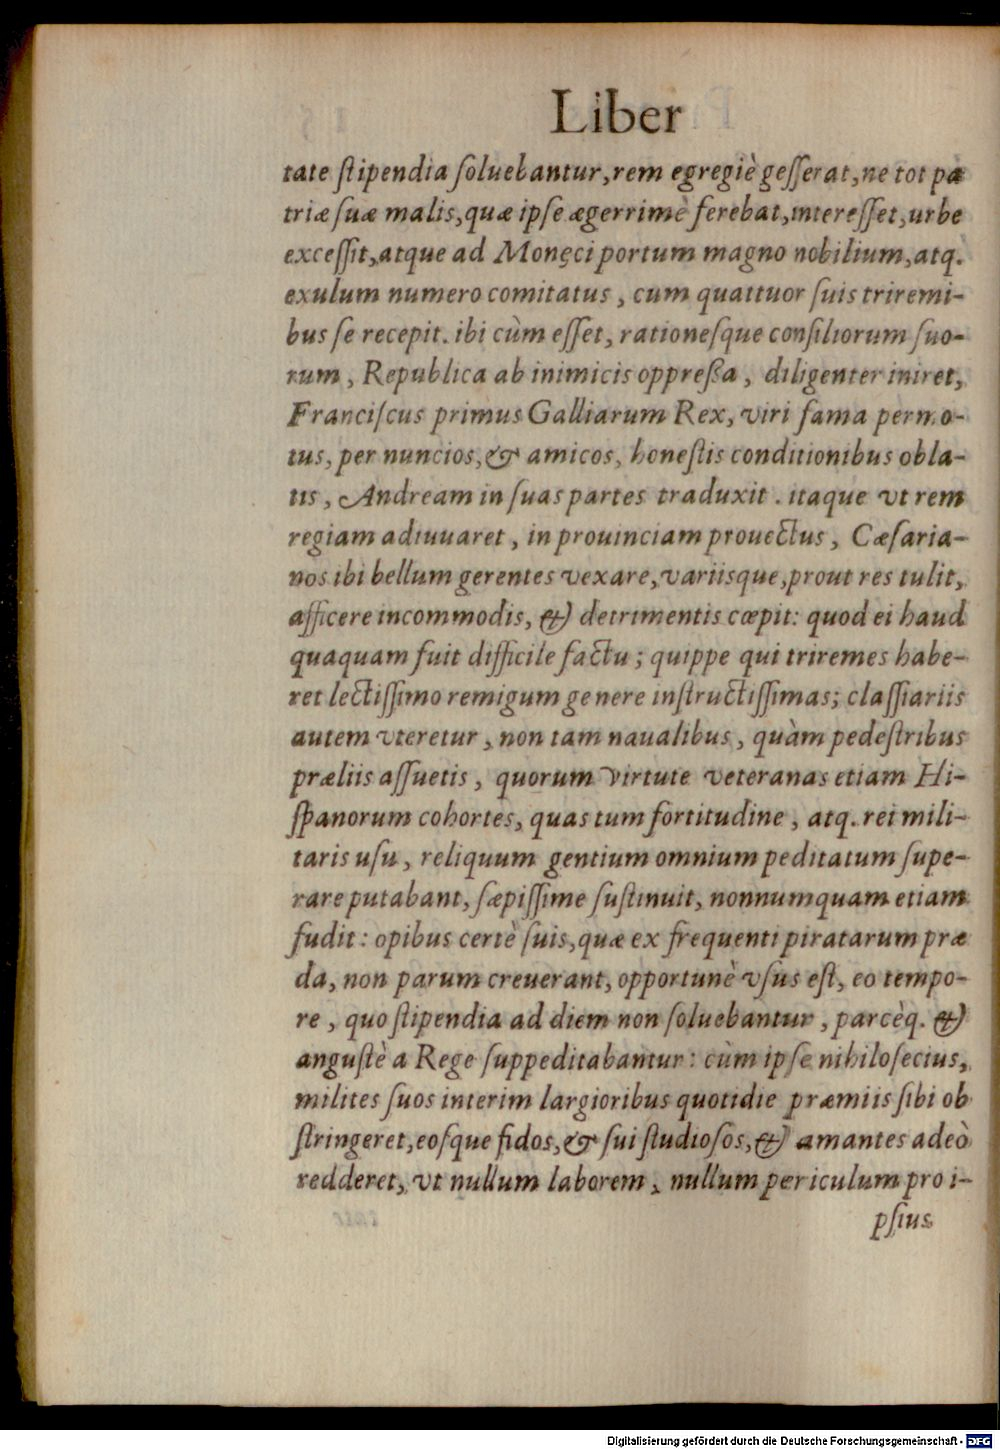 Liber
tate ſtipendia ſoluebantur, rem egregiè geſſerat, ne tot pa
triæ ſuæ malis, quæ ipſe ægerrimè ferebat, intereſſet, urbe
exceſſit, atque ad Monęci portum magno nobilium, atq.
exulum numero comitatus, cum quattuor ſuis triremi-
bus ſe recepit. ibi cùm eſſet, rationeſque conſiliorum ſuo-
rum, Republica ab inimicis oppreßa, diligenter iniret,
Franciſcus primus Galliarum Rex, viri fama permo-
tus, per nuncios, & amicos, honeſtis conditionibus obla-
tis, Andream in ſuas partes traduxit. itaque vt rem
regiam adiuuaret, in prouinciam prouectus, Cæſaria-
nos ibi bellum gerentes vexare, variisque, prout res tulit,
afficere incommodis, & detrimentis cœpit: quod ei haud
quaquam fuit difficile factu; quippe qui triremes habe-
ret lectiſſimo remigum genere inſtructiſſimas; claſſiariis
autem vteretur, non tam naualibus, quàm pedeſtribus
præliis aſſuetis, quorum virtute veteranas etiam Hi-
ſpanorum cohortes, quas tum fortitudine, atq. rei mili-
taris uſu, reliquum gentium omnium peditatum ſupe-
rare putabant, ſæpiſſime ſuſtinuit, nonnumquam etiam
fudit: opibus certè ſuis, quæ ex frequenti piratarum præ
da, non parum creuerant, opportunè vſus eſt, eo tempo-
re, quo ſtipendia ad diem non ſoluebantur, parcèq. &
anguſtè a Rege ſuppeditabantur: cùm ipſe nihiloſecius,
milites ſuos interim largioribus quotidie præmiis ſibi ob
ſtringeret, eoſque fidos, & ſui ſtudioſos, & amantes adeò
redderet, vt nullum laborem, nullum periculum pro i-
pſius
Digitalisierung gefördert durch die Deutsche Forschungsgemeinschaft - DFG